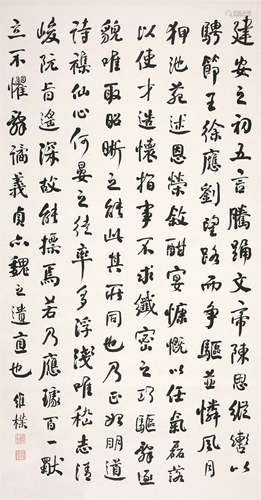 建安之初五言騰踊文帝陳思縱轡以
騁節王徐應劉望路而爭驅並憐風月
狎池苑述恩榮敘酣宴慷慨以任氣磊落
以使才造懷指事不求纖密之巧驅辭逐
貌唯取昭晰之能此其所同也乃正始明道
詩襍仙心何晏之徒率多浮淺唯嵇志清
峻阮旨遙深故能摽焉若乃應璩百一獸
立不懼辭譎義貞亦魏之遺直也 維樸